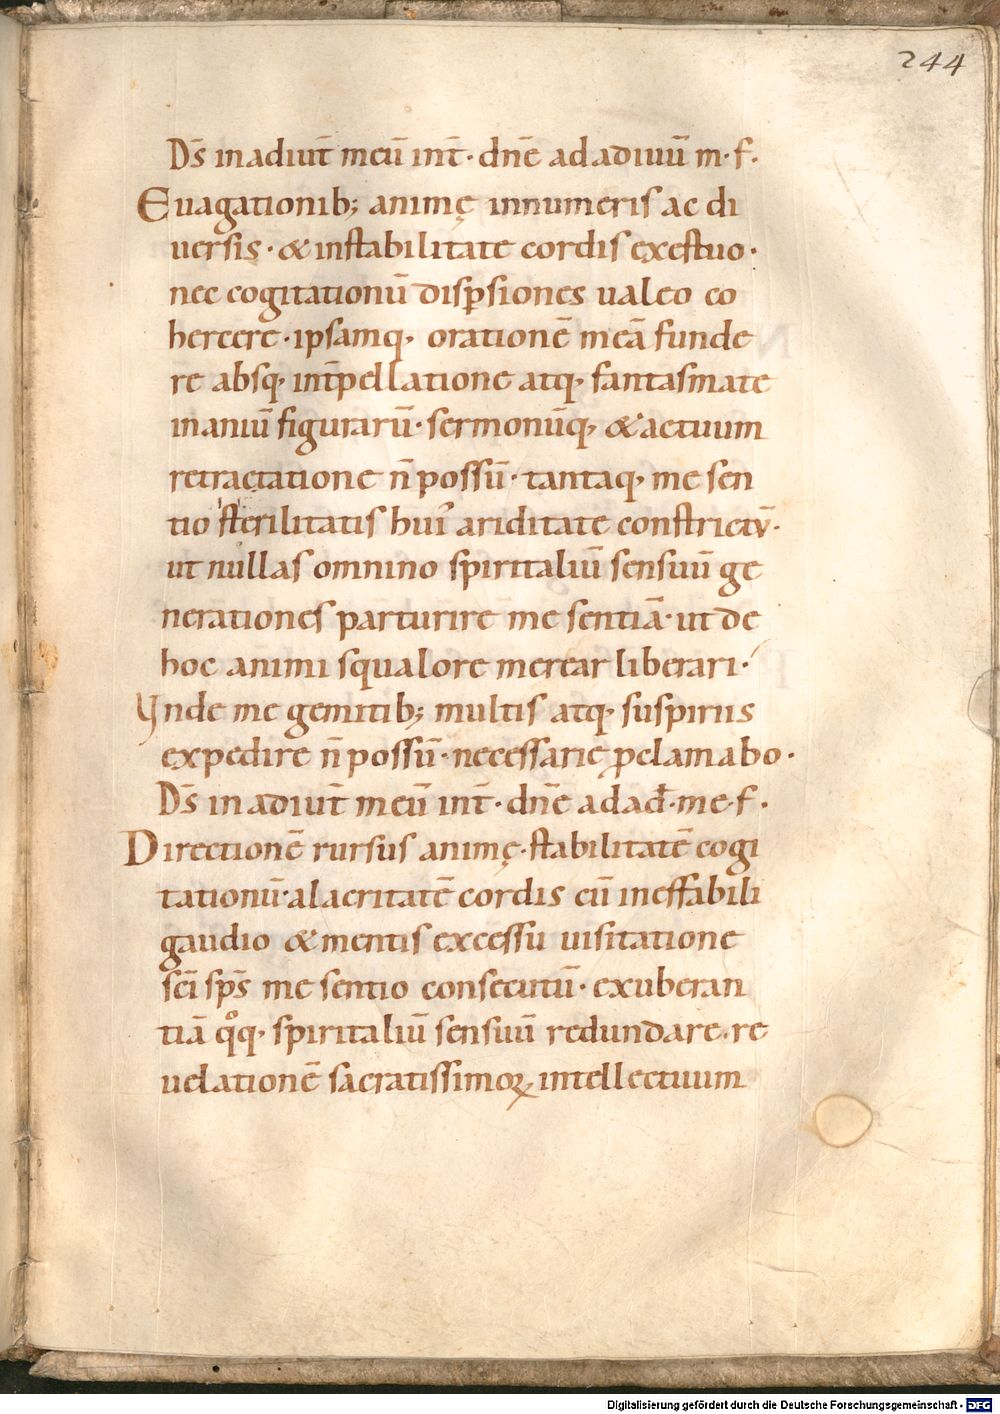 244
Ds̄ inadiut̄ meū int̄· dn̄e adadiuuū m·f·
Euagationib; animę innumeris ac di
uersis· & instabilitate cordis exestuo·
nec cogitationū disp̄siones ualeo co
hercere· ipsamq· orationē meā funde
re absq· int̄pellatione atq· fantasmate
inaniū figurarū· sermonūq· & actuum
retractatione n̄ possū· tantaq· me sen
tio sterilitatis hui᾽ ariditate constrictū·
ut nullas omnino spiritaliū sensuū ge
nerationes parturire me sentiā· ut de
hoc animi squalore merear liberari·
Unde me gemitib; multis atq· suspiriis
expedire n̄ possū· necessarie ꝓclamabo·
Ds̄ in adiut̄ meū int̄· dn̄e adad̄·me·f·
Directionē rursus animę· stabilitatē cogi
tationū· alacritatē cordis cū ineffabili
gaudio & mentis excessu uisitatione
sc̄i sp̄s me sentio consecutū· exuberan
tiā qͦq· spiritaliū sensuū redundare· re
uelationē sacratissimoꝝ intellectuum
Digitalisierung gefördert durch die Deutsche Forschungsgemeinschaft - DFG